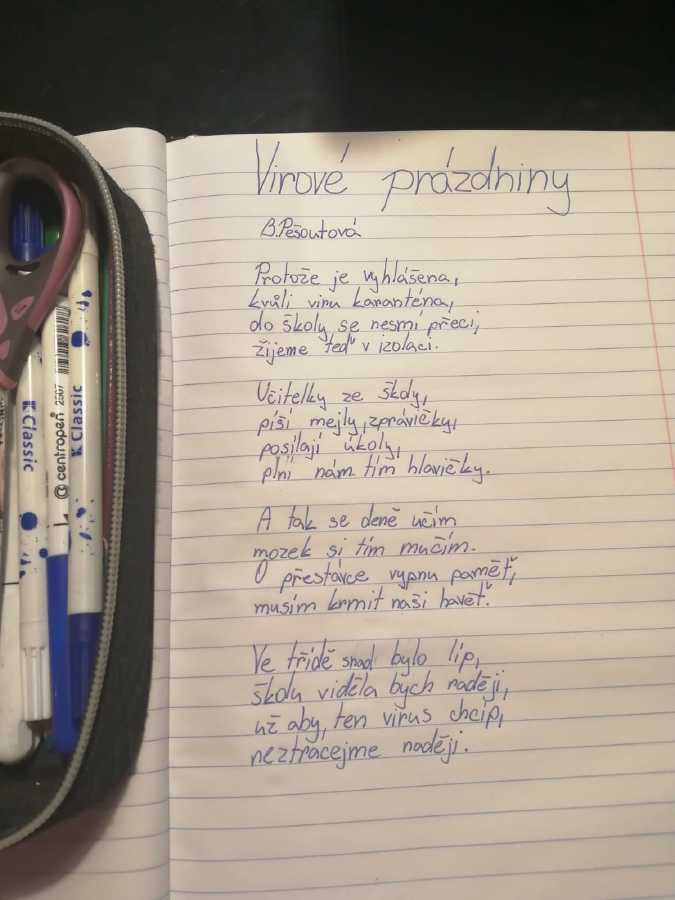 Virové prázdniny
B.Pešoutová
Protože je vyhlášena,
kvůli viru karanténa,
do školy se nesmí přeci,
žijeme teď v izolaci.
Učitelky ze školy,
píší mejly, zprávičky,
posílají úkoly,
plní nám tím hlavičky.
A tak se deně učím
mozek si tím mučím.
O přestávce vypnu paměť,
musím krmit naši havěť.
Ve třídě snad bylo líp,
školu viděla bych raději,
už aby, ten virus chcíp,
neztrácejme naději.
K Classic
centropen 2507
K Classic